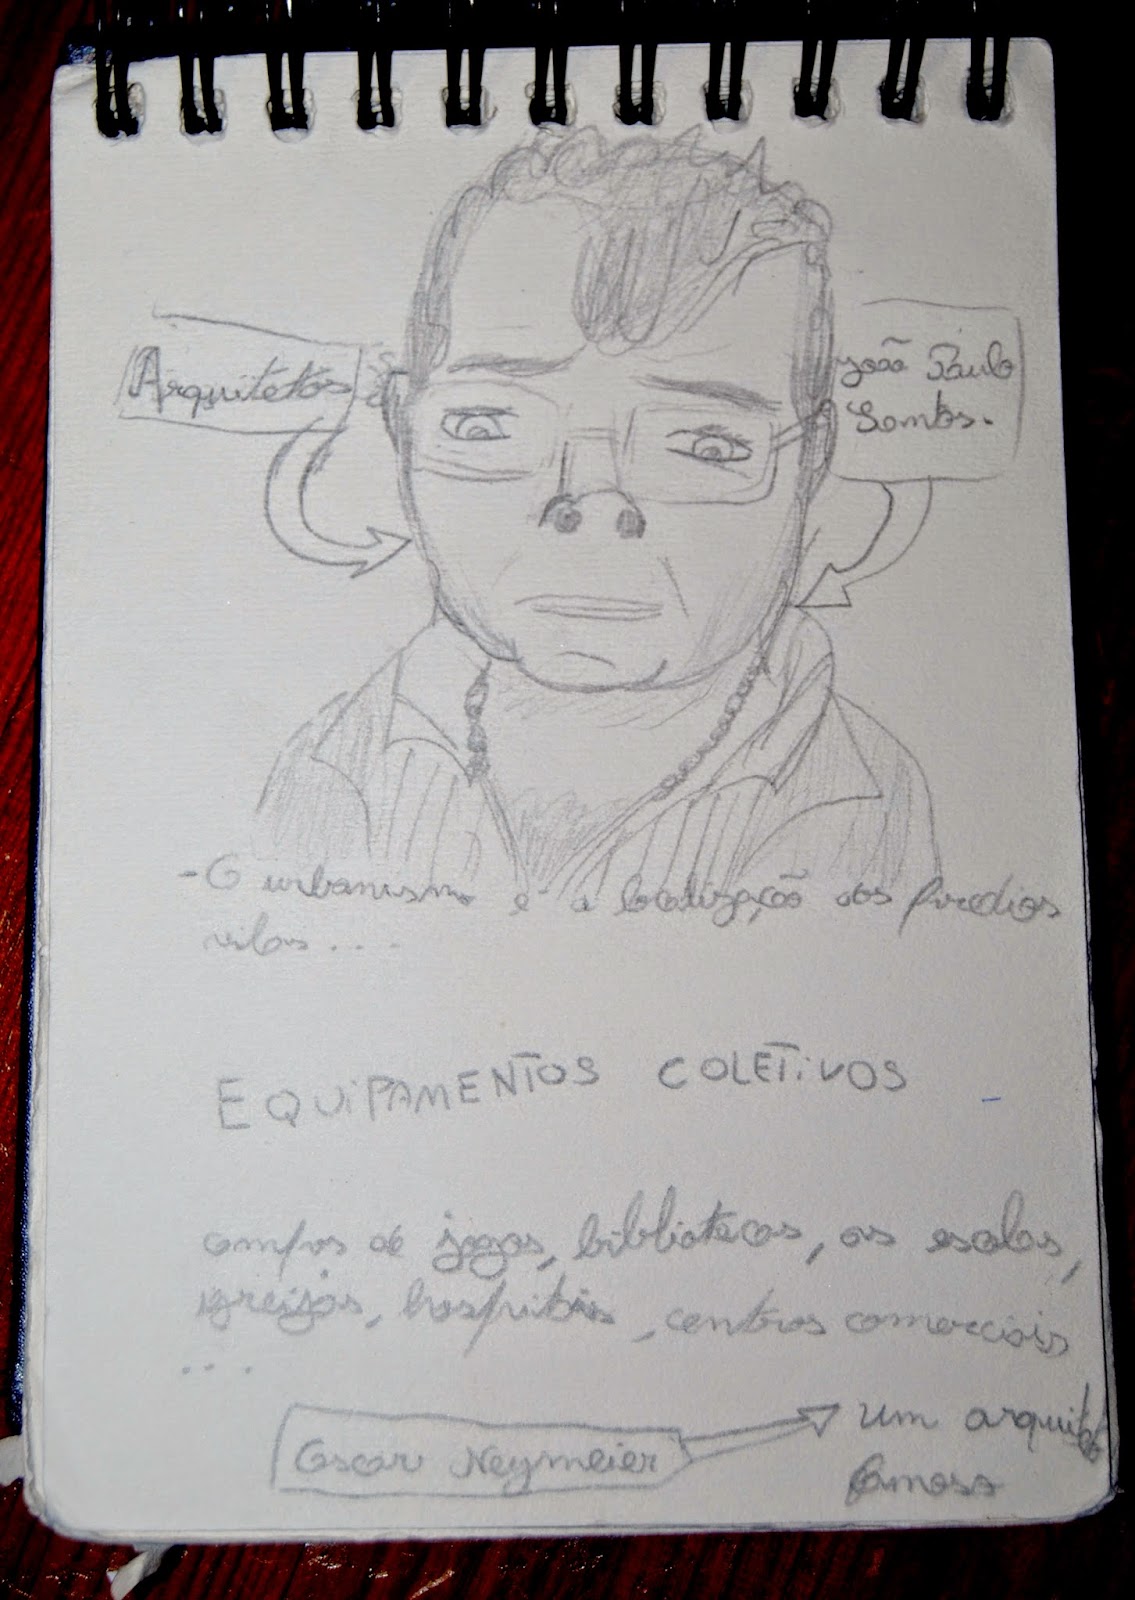 Arquitetos
João Paulo
- O urbanismo é a localização dos predios
vilas . . . .
EQUIPAMENTOS COLETIVOS
campos de jogos, bibliotecas, as escolas,
igrejas, hospitais, centros comerciais
. . .
Oscar Neymeier
um arquiteto
famoso